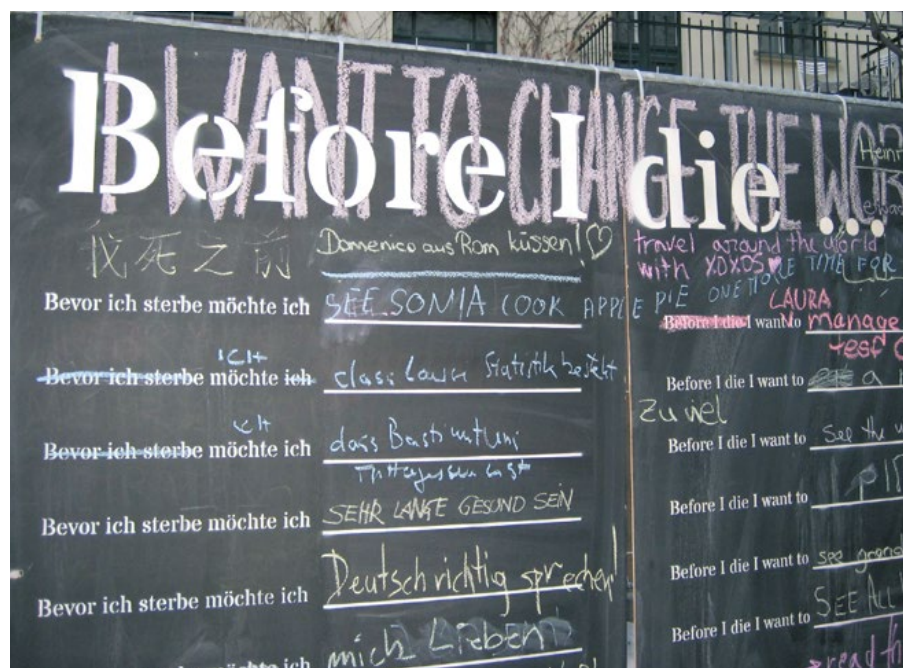 I WANT TO CHANGE THE WOR
Before I die ...
Heinr
我死之前
Domenico aus Rom küssen! ♡
Bevor ich sterbe möchte ich SEE SONIA COOK APPLE PIE ONE MORE TIME FOR
ich
Bevor ich sterbe möchte ich dass Laura Statistik besteht
ich
Bevor ich sterbe möchte ich dass Basti mit
Bevor ich sterbe möchte ich SEHR LANGE GESUND SEIN
Bevor ich sterbe möchte ich Deutsch richtig sprechen!
ich mich Lieben
travel around the world
with XOXOS ♥
LAURA
Before I die I want to manage
Before I die I want to a
Zu viel
Before I die I want to See the w
Before I die I want to
Before I die I want to see
Before I die I want to SEE ALL